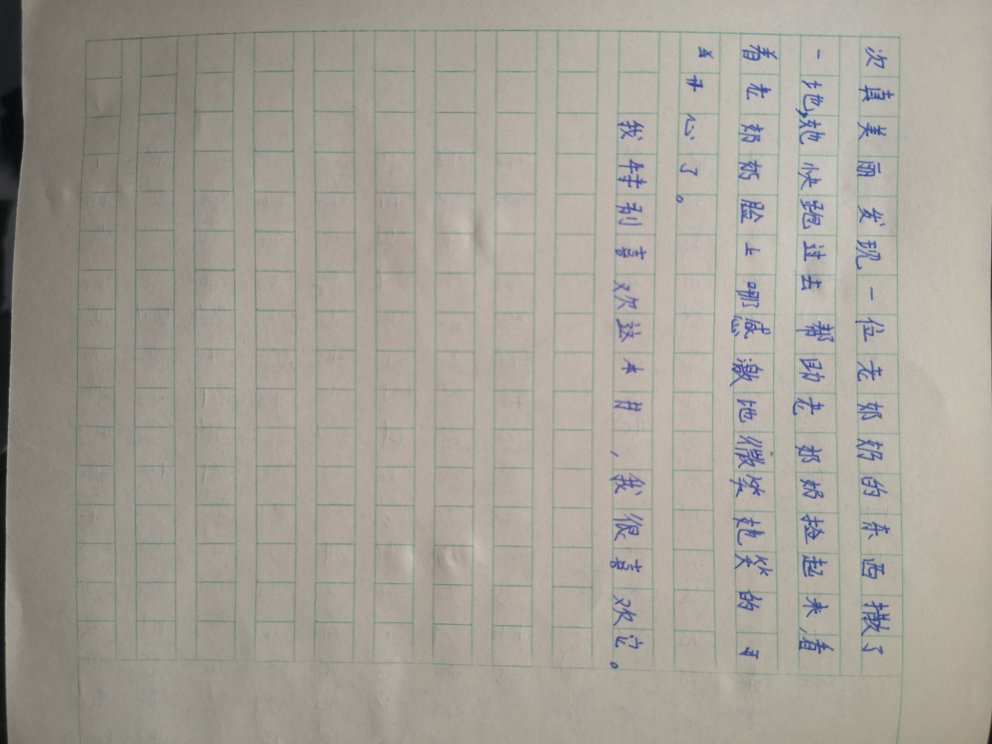 次真美丽发现一位老奶奶的东西撒了
一地,她快跑过去帮助老奶奶捡起来,看
着老奶奶脸上哪感激地微笑她笑的可
开心了。
我特别喜欢这本书,我很喜欢它。